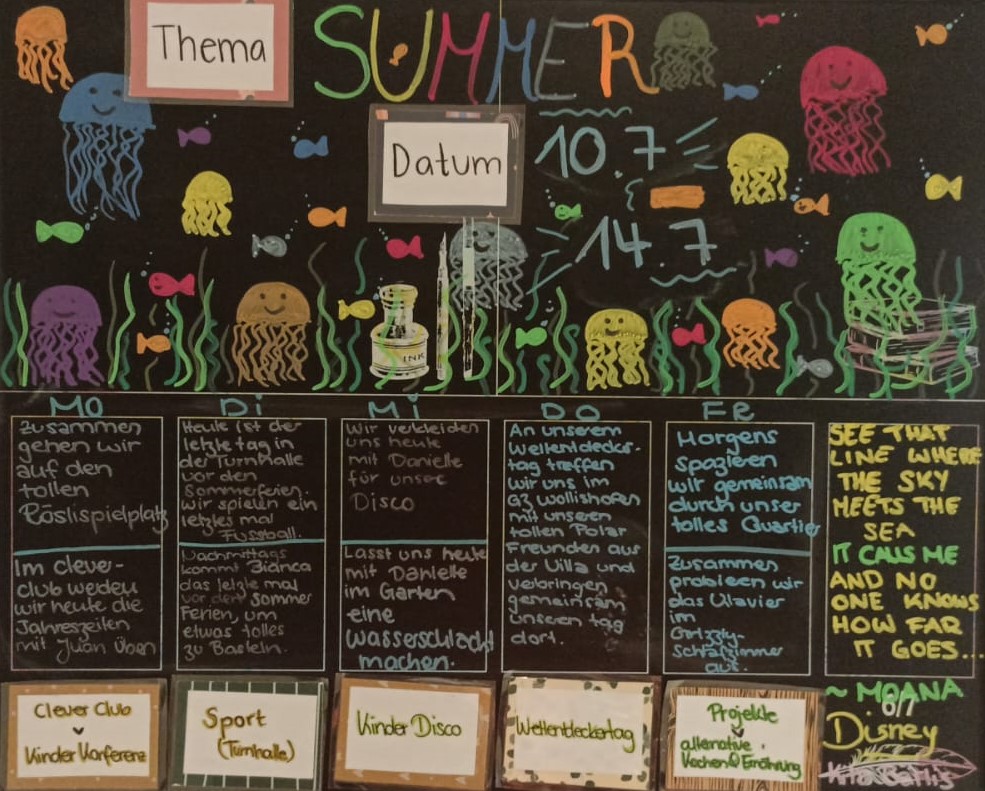 Thema
SUMMER
Datum
10.7
14.7
INK
MO
Zusammen
gehen wir
auf den
tollen
Röslispielplatz
Im Clever-
club werden
wir heute die
Jahreszeiten
mit Juan üben
Di
Heute ist der
letzte tag in
der Turnhalle
vor den
Sommerferien.
Wir spielen ein
letztes mal
Fussball.
Nachmittags
kommt Bianca
das letzte mal
vor den Sommer
Ferien, um
etwas tolles
zu Basteln.
Mi
Wir verkleiden
uns heute
mit Danielle
für unser
Disco
Lasst uns heute
mit Danielle
im Garten
eine
Wasserschlacht
machen.
DO
An unserem
Weltentdecker-
tag treffen
wir uns im
GZ Wollishofen
mit unseren
tollen Polar
Freunden aus
der Villa und
verbringen
gemeinsam
unseren tag
dort.
FR
Morgens
spazieren
wir gemeinsam
durch unser
tolles Quartier
Zusammen
probieren wir
das Klavier
im
Grizzly-
Schlafzimmer
aus.
SEE THAT
LINE WHERE
THE SKY
MEETS THE
SEA
IT CALLS ME
AND NO
ONE KNOWS
HOW FAR
IT GOES...
~ MOANA
6/7
Disney
Kita
Clever Club
Kinder Konferenz
Sport
(Turnhalle)
Kinder Disco
Weltentdeckertag
Projekte
alternative.
Kochen & Ernährung